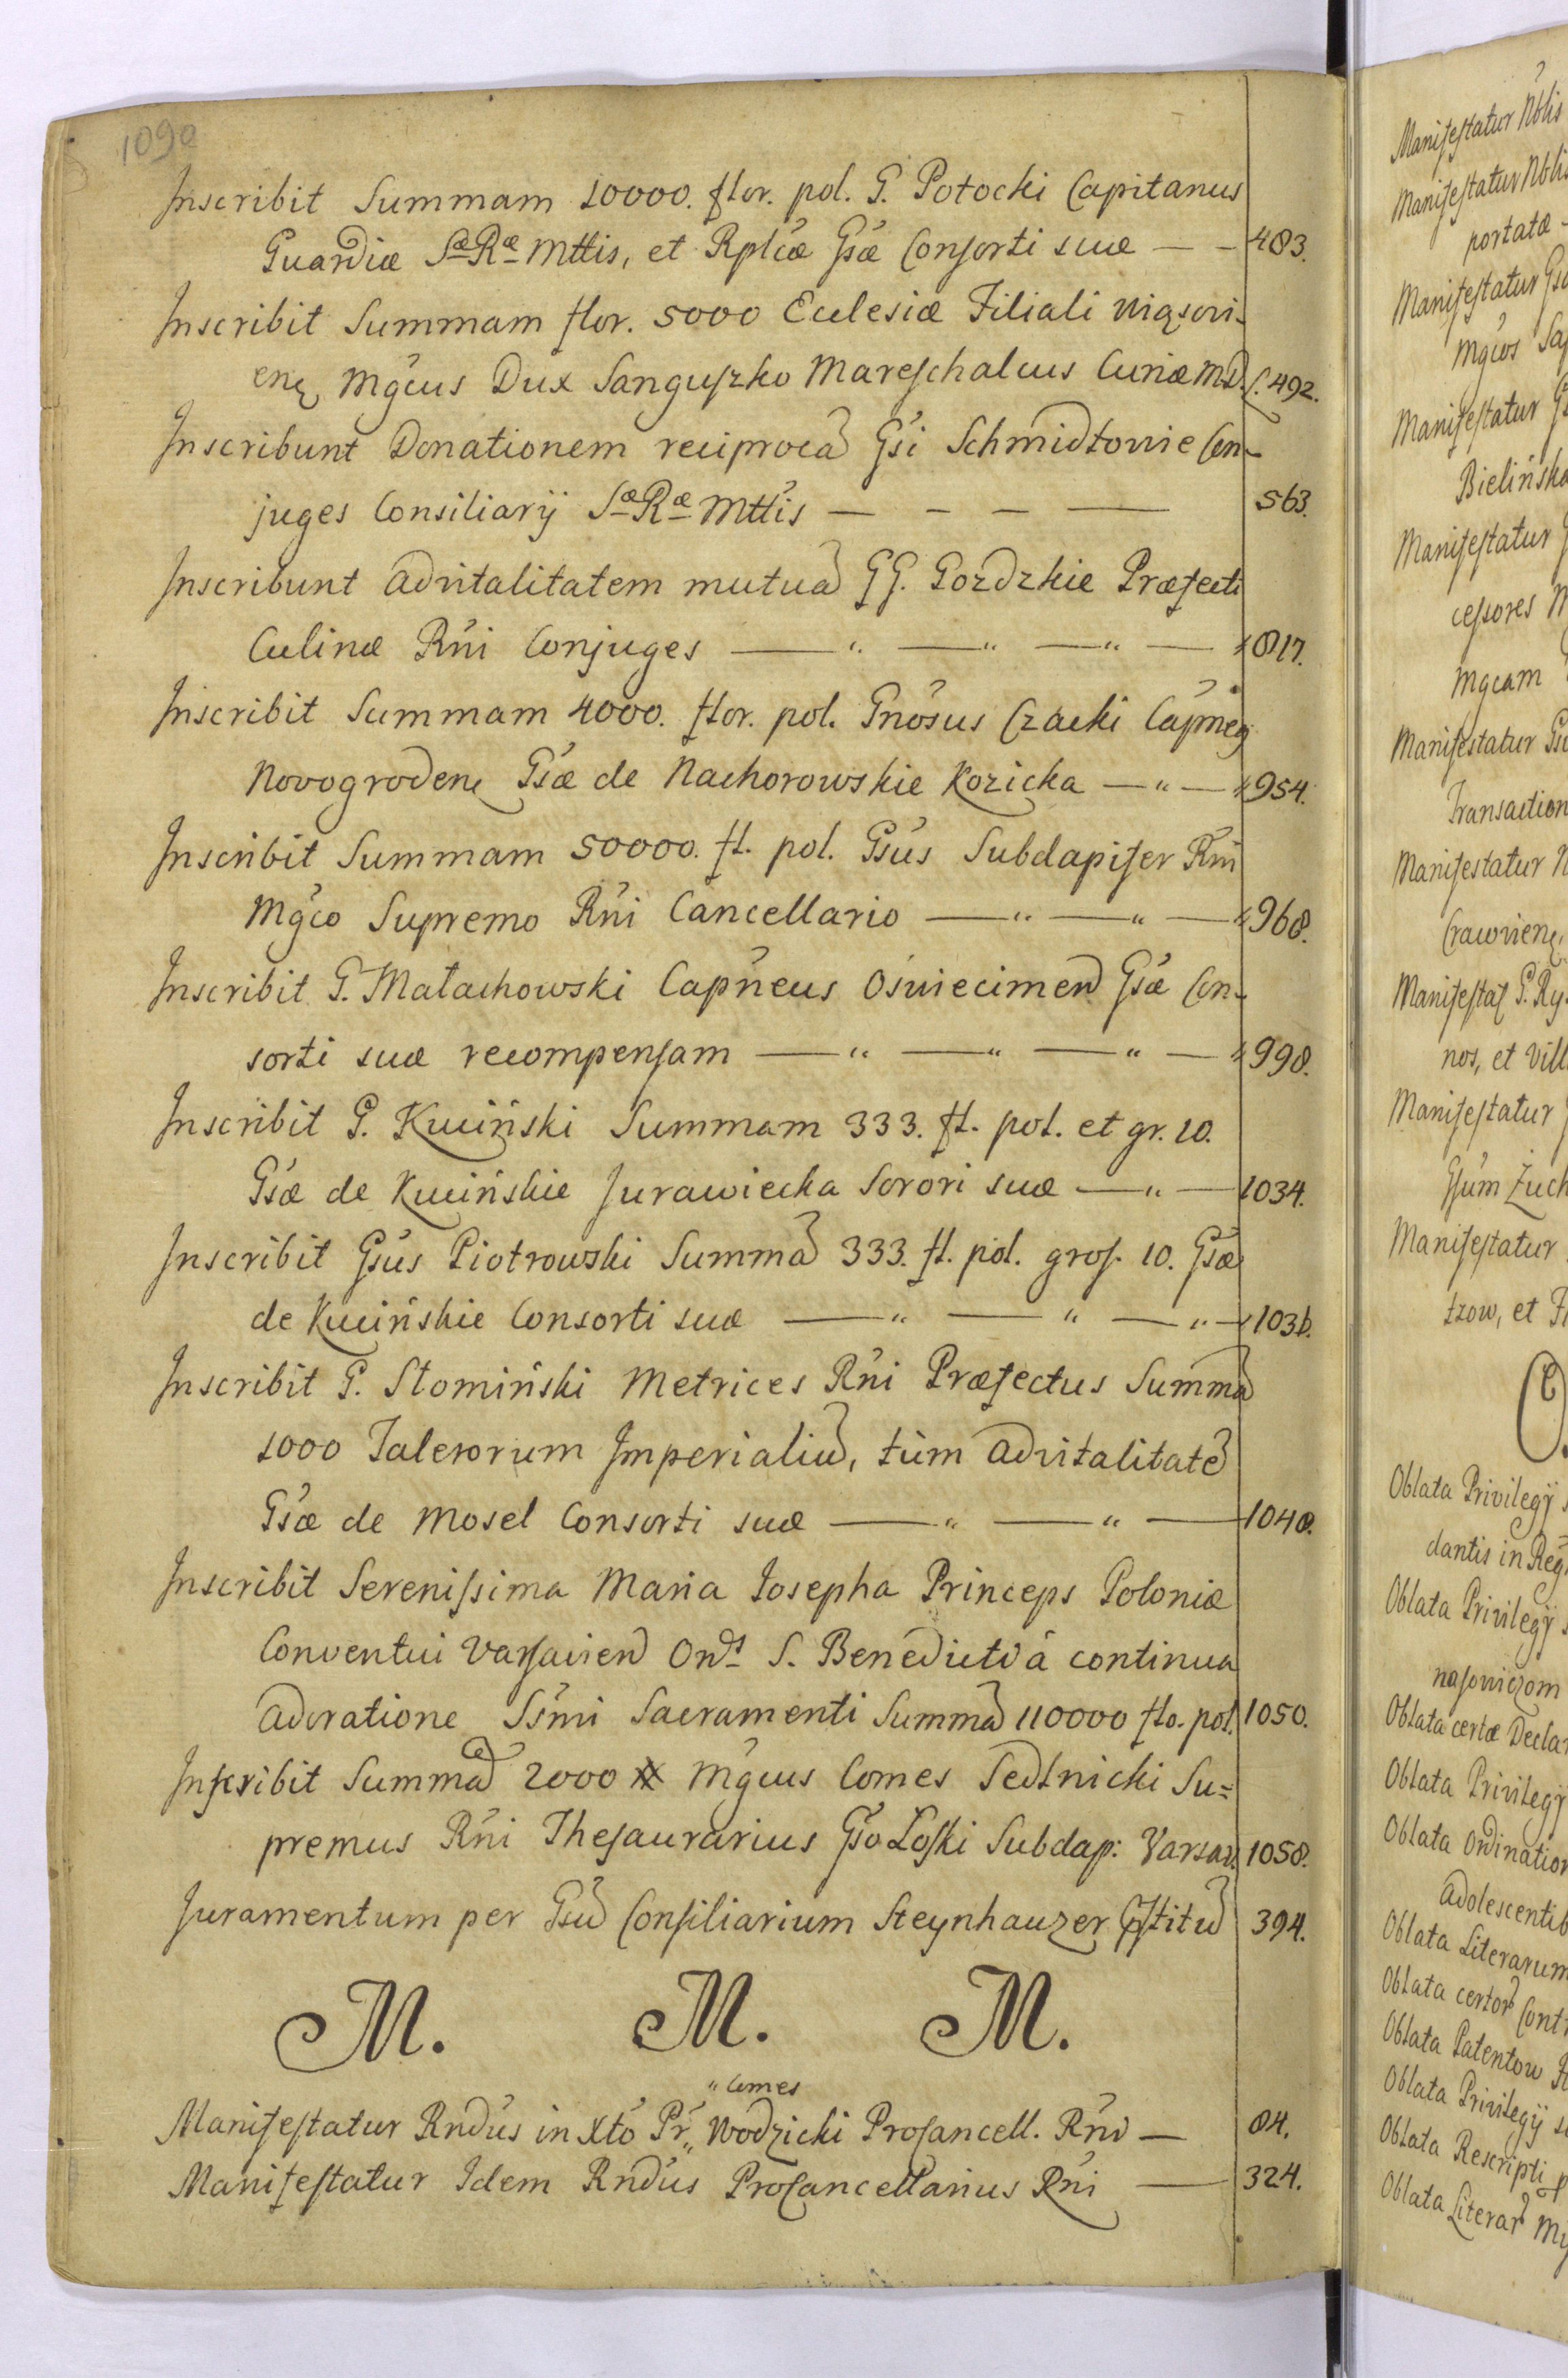 1090
Inscribit Summam 10000. flor. pol. G. Potocki Capitanus
Guardiæ Sæ Ræ Mttis, et Rplcæ Gsæ Consorti suæ — — 483.
Inscribit Summam flor. 5000 Ecclesiæ Filiali
Mgcus Dux Sanguszko Mareschalcus Curiæ M.D.L. 492.
Inscribunt Donationem reciprocã Gsi Schmidtowie Con-
juges Consiliarÿ Sæ Ræ Mttis — — — — 563.
Inscribunt advitalitatem mutuã GG. Gozdzkie Præfecti
Culinæ Rni Conjuges — „ — „ — „ — 817.
Inscribit Summam 4000. flor. pol. Gnosus Czacki Capneus
Novogroden Gsæ de Nachorowskie Kozicka — „ — 954.
Inscribit Summam 50000. fl. pol. Gsus Subdapifer Rni
Mgco Supremo Rni Cancellario — „ — „ — 968.
Inscribit G. Małachowski Capneus Oswiecimen Gsæ Con-
sorti suæ recompensam — „ — „ — „ — 998.
Inscribit G. Kuciński Summam 333. fl. pol. et gr. 10.
Gsæ de Kucińskie Jurawiecka Sorori suæ — „ — 1034.
Inscribit Gsus Piotrowski Summã 333. fl. pol. gros. 10. Gsæ
de Kucińskie Consorti suæ — „ — „ — „ — 1036.
Inscribit G. Słomiński Metrices Rni Præfectus Summã
1000 Talerorum Imperialiũ, tùm advitalitatẽ
Gsæ de Mosel Consorti suæ — „ — „ — 1048.
Inscribit Serenissima Maria Josepha Princeps Poloniæ
Conventui Varsavien Ordis S. Benedicti à continua
adoratione Ssmi Sacramenti Summã 110000 flo. pol. 1050.
Inscribit Summã 2000 # Mgcus Comes Sedlnicki Su=
premus Rni Thesaurarius Gso Łoski Subdap: Varsav. 1058.
Juramentum per Gsũ Consiliarium Steynhauzer pstitũ 394.
M. M. M.
„ Comes
Manifestatur Rndus in Xto Pr „ Wodzicki Procancell. Rni — 84.
Manifestatur Idem Rndus Procancellarius Rni — 324.
Manifestatur Nblis
Manifestatur Nblis
portatæ -
Manifestatur
Mgcos
Manifestatur
Bielińska
Manifestatur
cessores
Mgcam
Manifestatur
Transaction
Manifestatur
Manifestat G.
nos, et
Manifestatur
Gsum
Manifestatur
O.
Oblata Privilegÿ
dantis in
Oblata Privilegÿ
Oblata certæ
Oblata Privilegÿ
Oblata
Oblata Literarum
Oblata
Oblata Patentow
Oblata Privilegÿ
Oblata Rescripti
Oblata